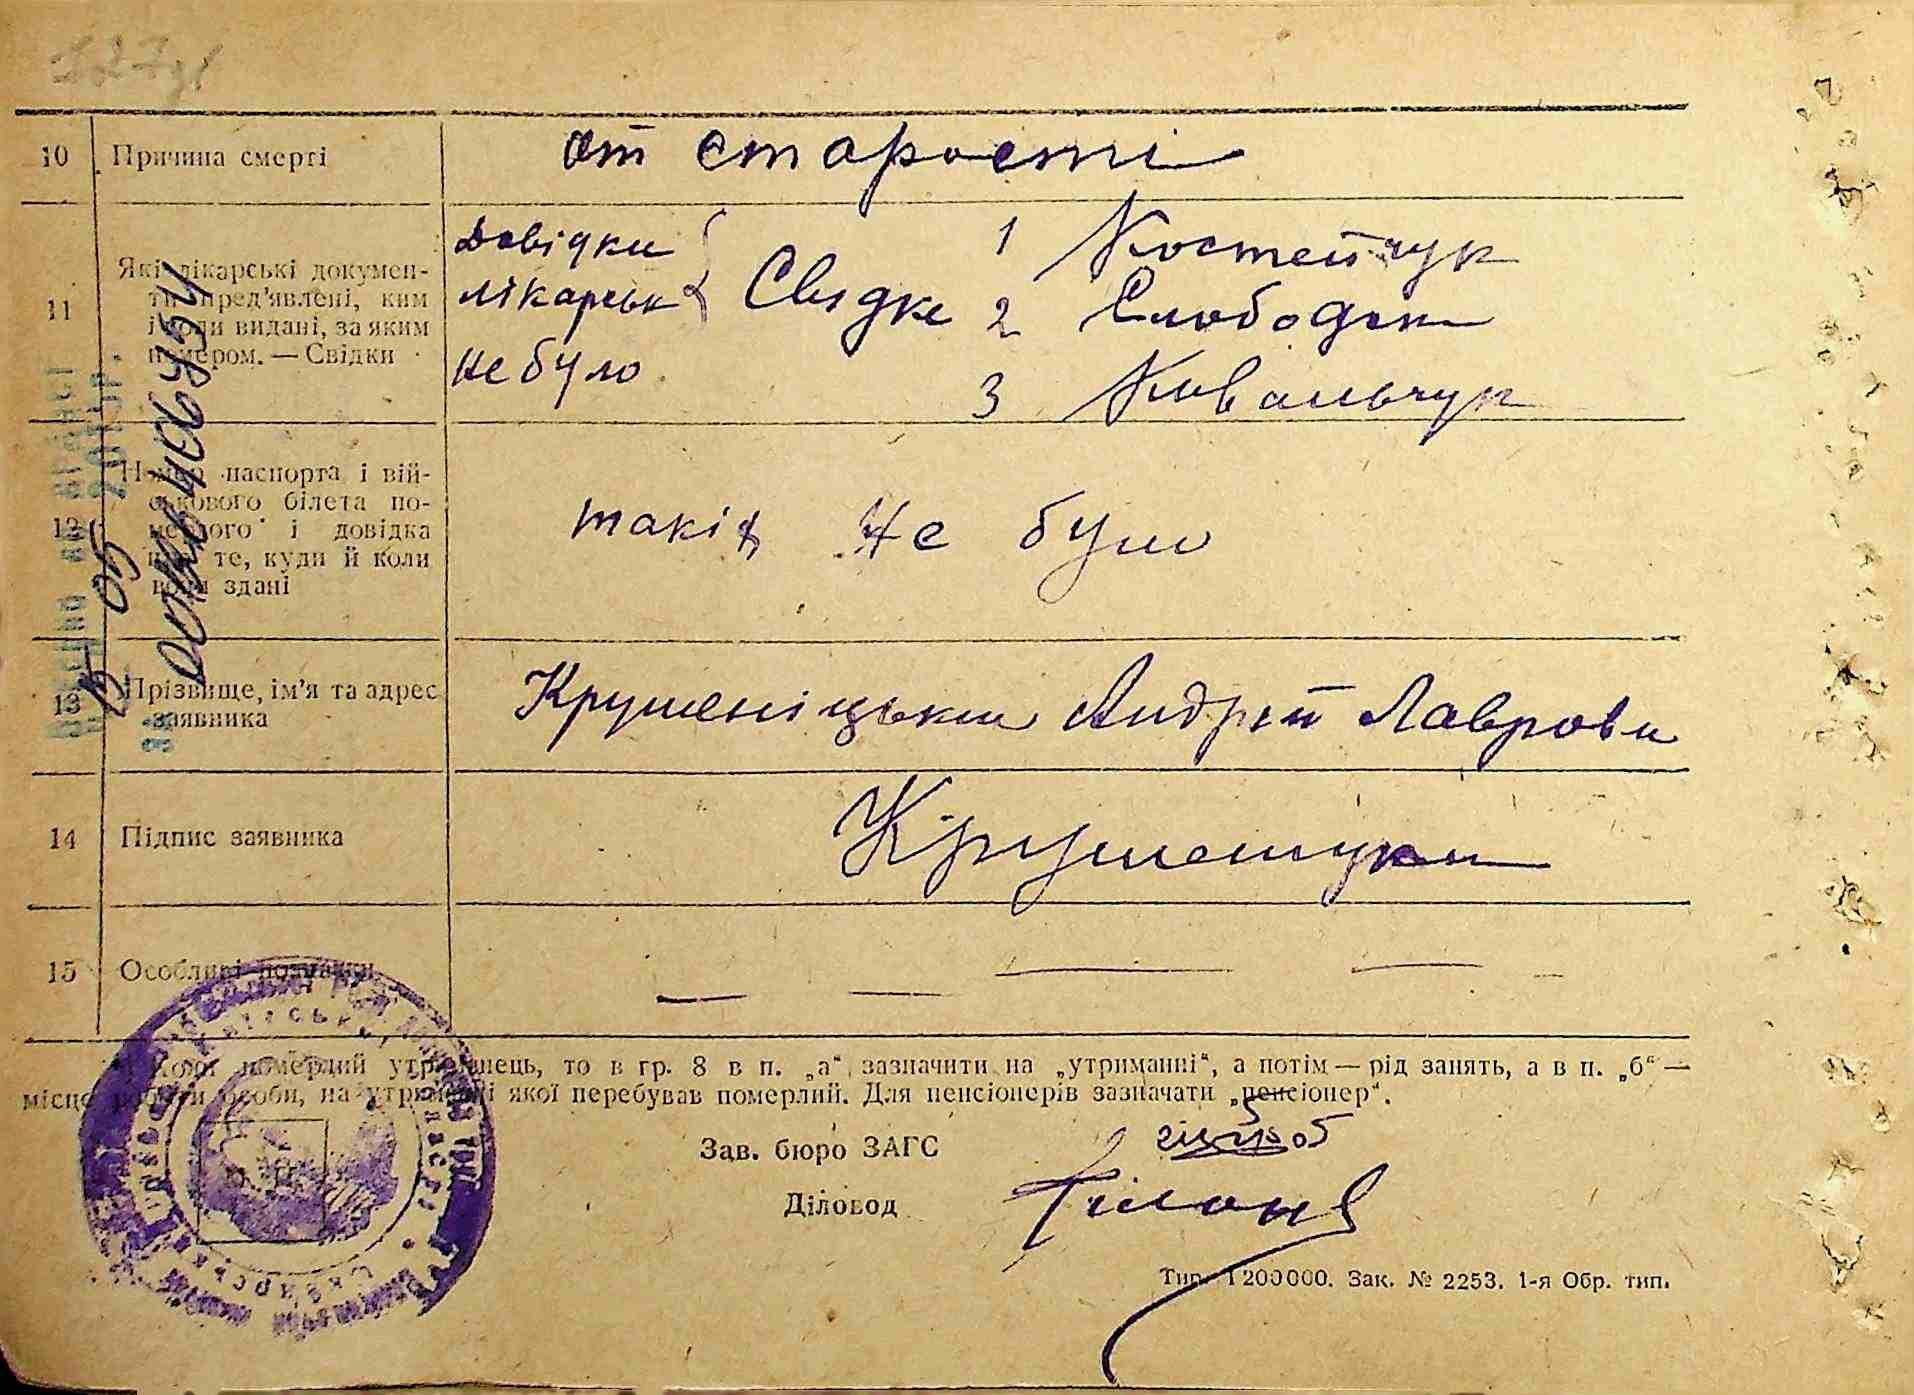 10 Причина смерті от старості
11 Які лікарські докумен-
ти пред'явлені, ким
і коли видані, за яким
номером. — Свідки
Довідки
лікарськ
не було
Свидке
1 Костейчук
2 Слободян
3 Ковальчук
12 Номер паспорта і вій-
ськового білета по-
мерлого і довідка
про те, куди й коли
вони здані
такіх не було
13 Прізвище, ім'я та адрес
заявника
Крушеніцьки Андрей Лаврови
14 Підпис заявника
15 Особливі познаки
Коли померлий утриманець, то в гр. 8 в п. „а“ зазначити на „утриманні“, а потім — рід занять, а в п. „б“ —
місце роботи особи, на утриманні якої перебував померлий. Для пенсіонерів зазначати „пенсіонер“.
Зав. бюро ЗАГС
Діловод
Тир. 1200000. Зак. № 2253. 1-я Обр. тип.